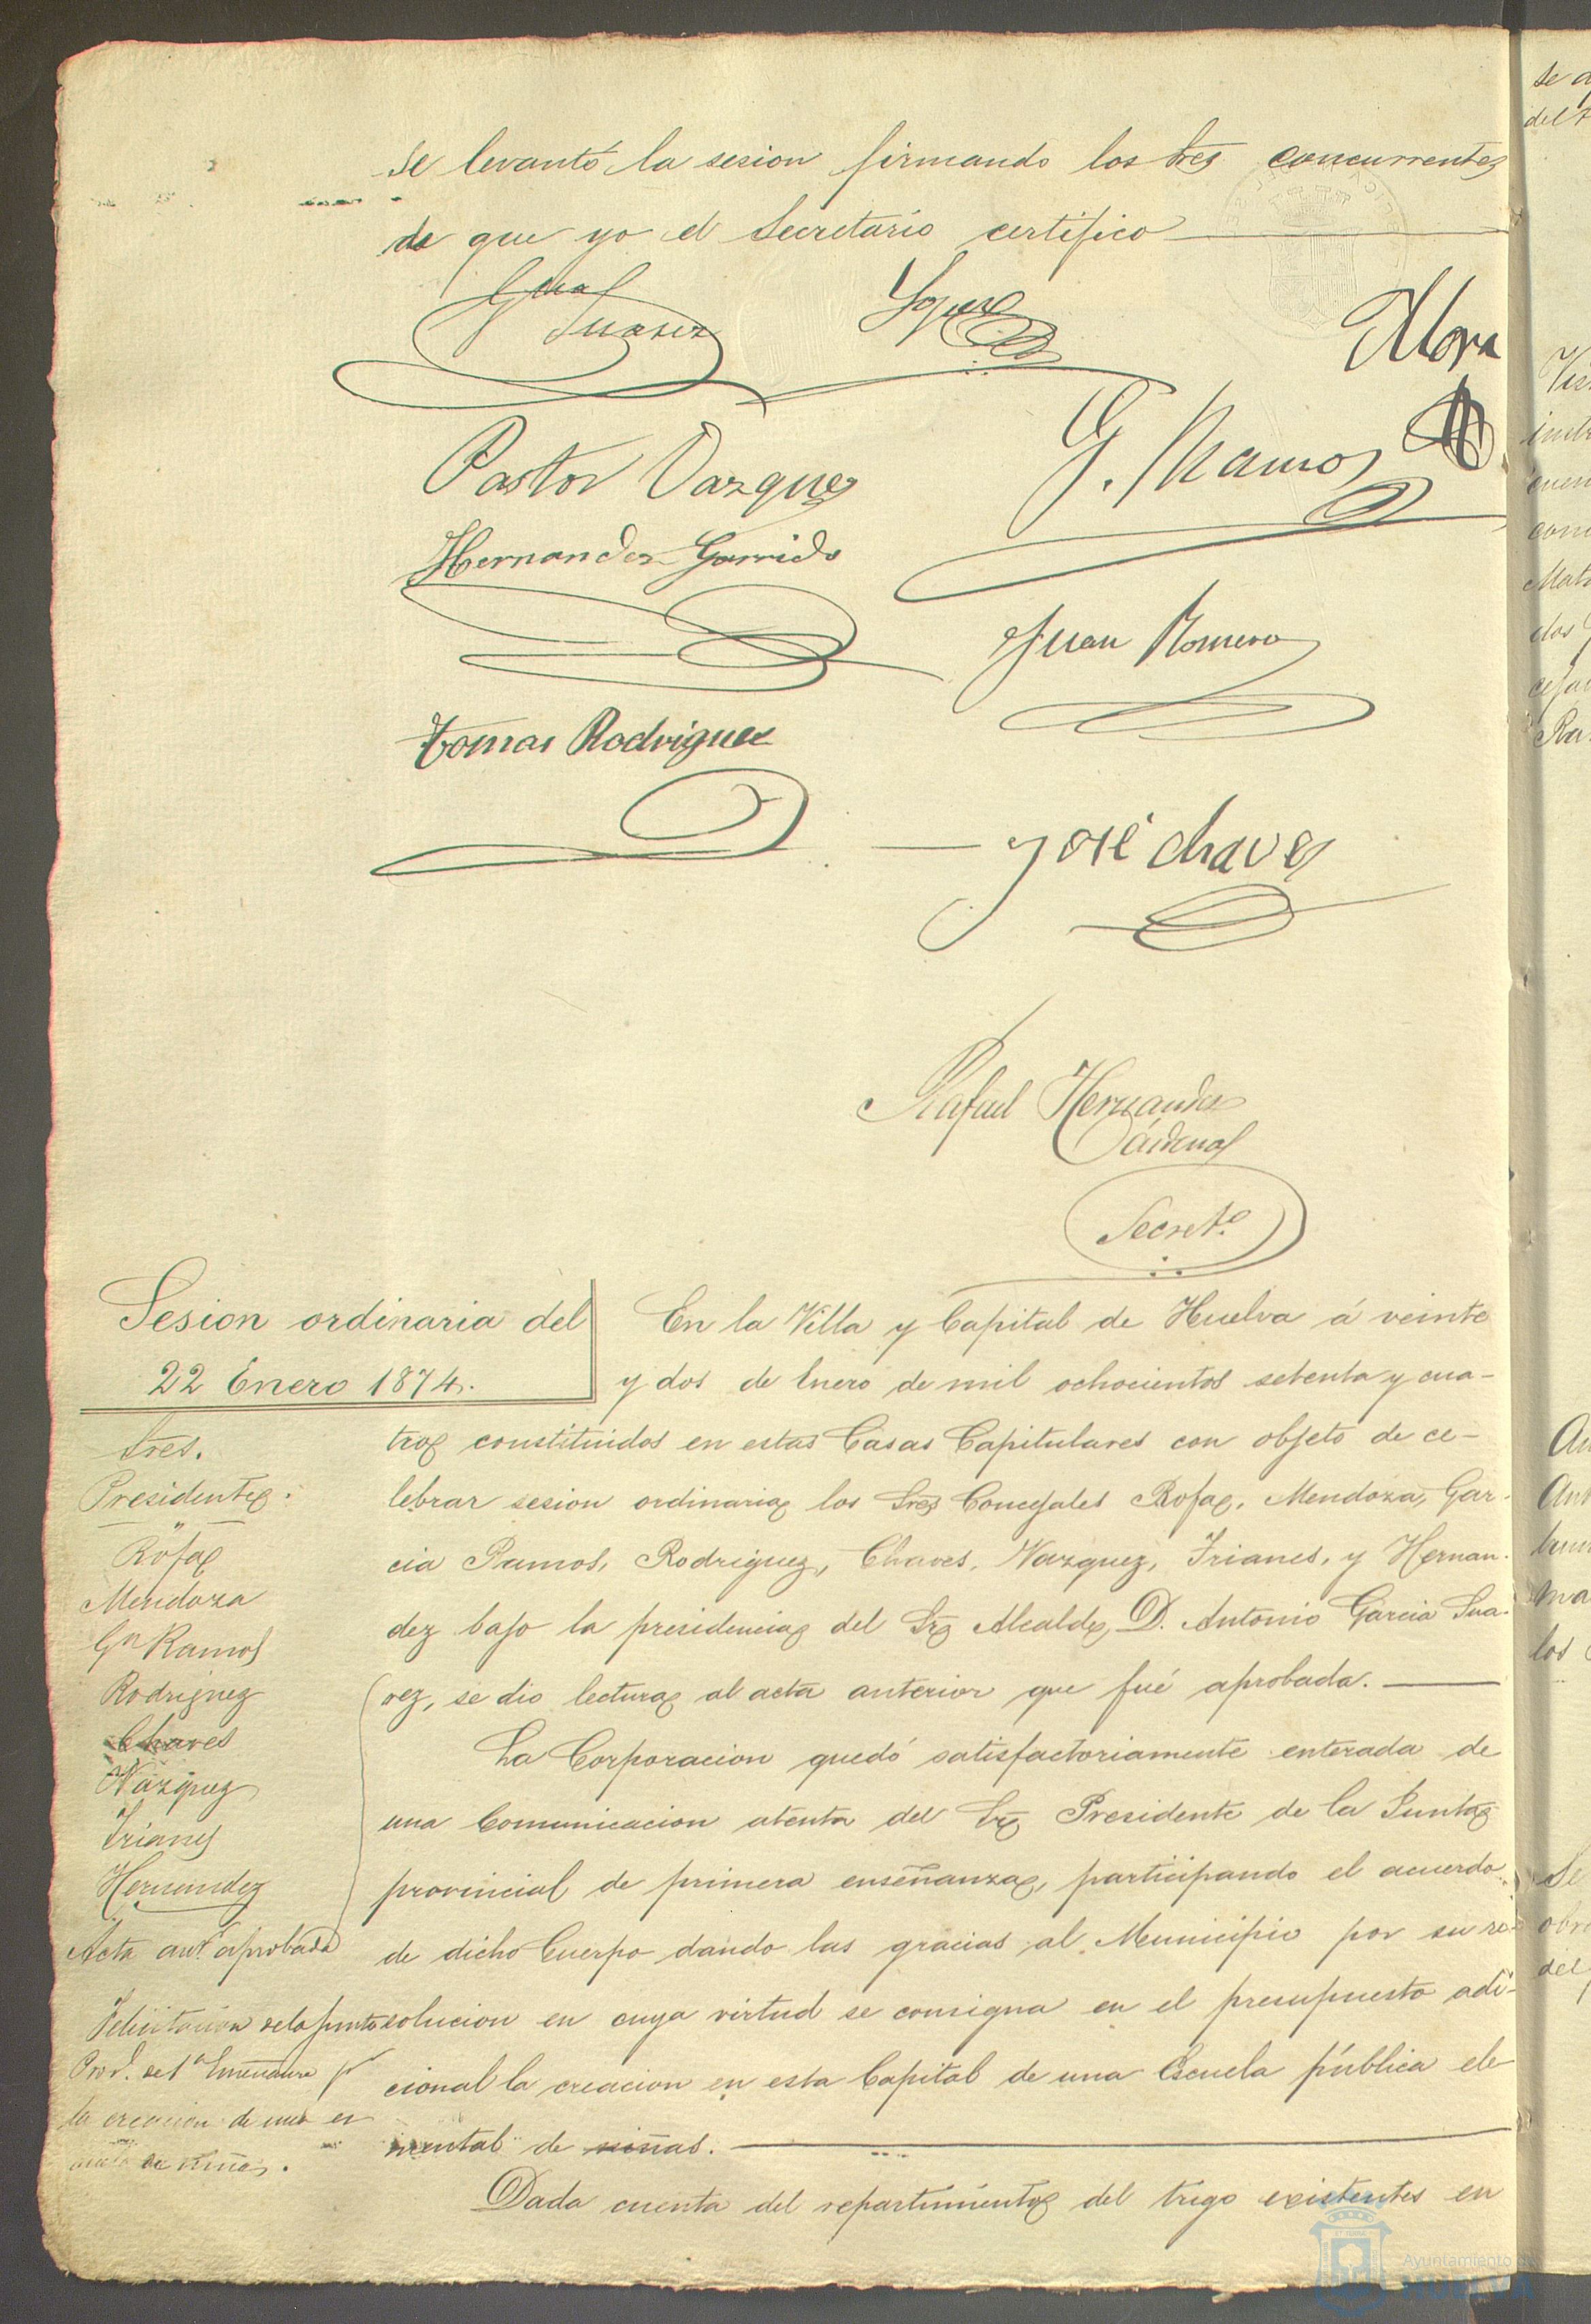 se levantó la sesion firmando los Sres concurrentes
de que yo el Secretario certifico
Gcia
Suarez
Mora
Pastor Vazquez
G. Ramos
Hernandez Garrido
Juan Romero
Tomas Rodriguez
José Chaves
Rafael Hernandez
Cárdenas
Secret.º
Sesion ordinaria del
22 Enero 1874.
Sres.
Presidente.
Rofa
Mendoza
Gª Ramos
Rodriguez
Chaves
Vazquez
Trianes
Hernandez
Acta ant. aprobada
Felicitacion de la Junta
Prov.l de 1ª Enseñanza pr
la creacion de una es
cuela de niñas.
En la Villa y Capital de Huelva á veinte
y dos de Enero de mil ochocientos setenta y cua-
tro constituidos en estas Casas Capitulares con objeto de ce-
lebrar sesion ordinaria los Sres Concejales Rofa, Mendoza, Gar-
cia Ramos, Rodriguez, Chaves, Vazquez, Trianes, y Hernan-
dez bajo la presidencia del Sr Alcalde, D. Antonio Garcia Sua-
rez, se dio lectura al acta anterior que fué aprobada.
La Corporacion quedó satisfactoriamente enterada de
una Comunicacion atenta del Sr Presidente de la Junta
provincial de primera enseñanza, participando el acuerdo
de dicho Cuerpo dando las gracias al Municipio por su re-
solucion en cuya virtud se consigna en el presupuesto adi-
cional la creacion en esta Capital de una Escuela pública ele
mental de niñas.
Dada cuenta del repartimiento del trigo existentes en
Ayuntamiento de
HUELVA